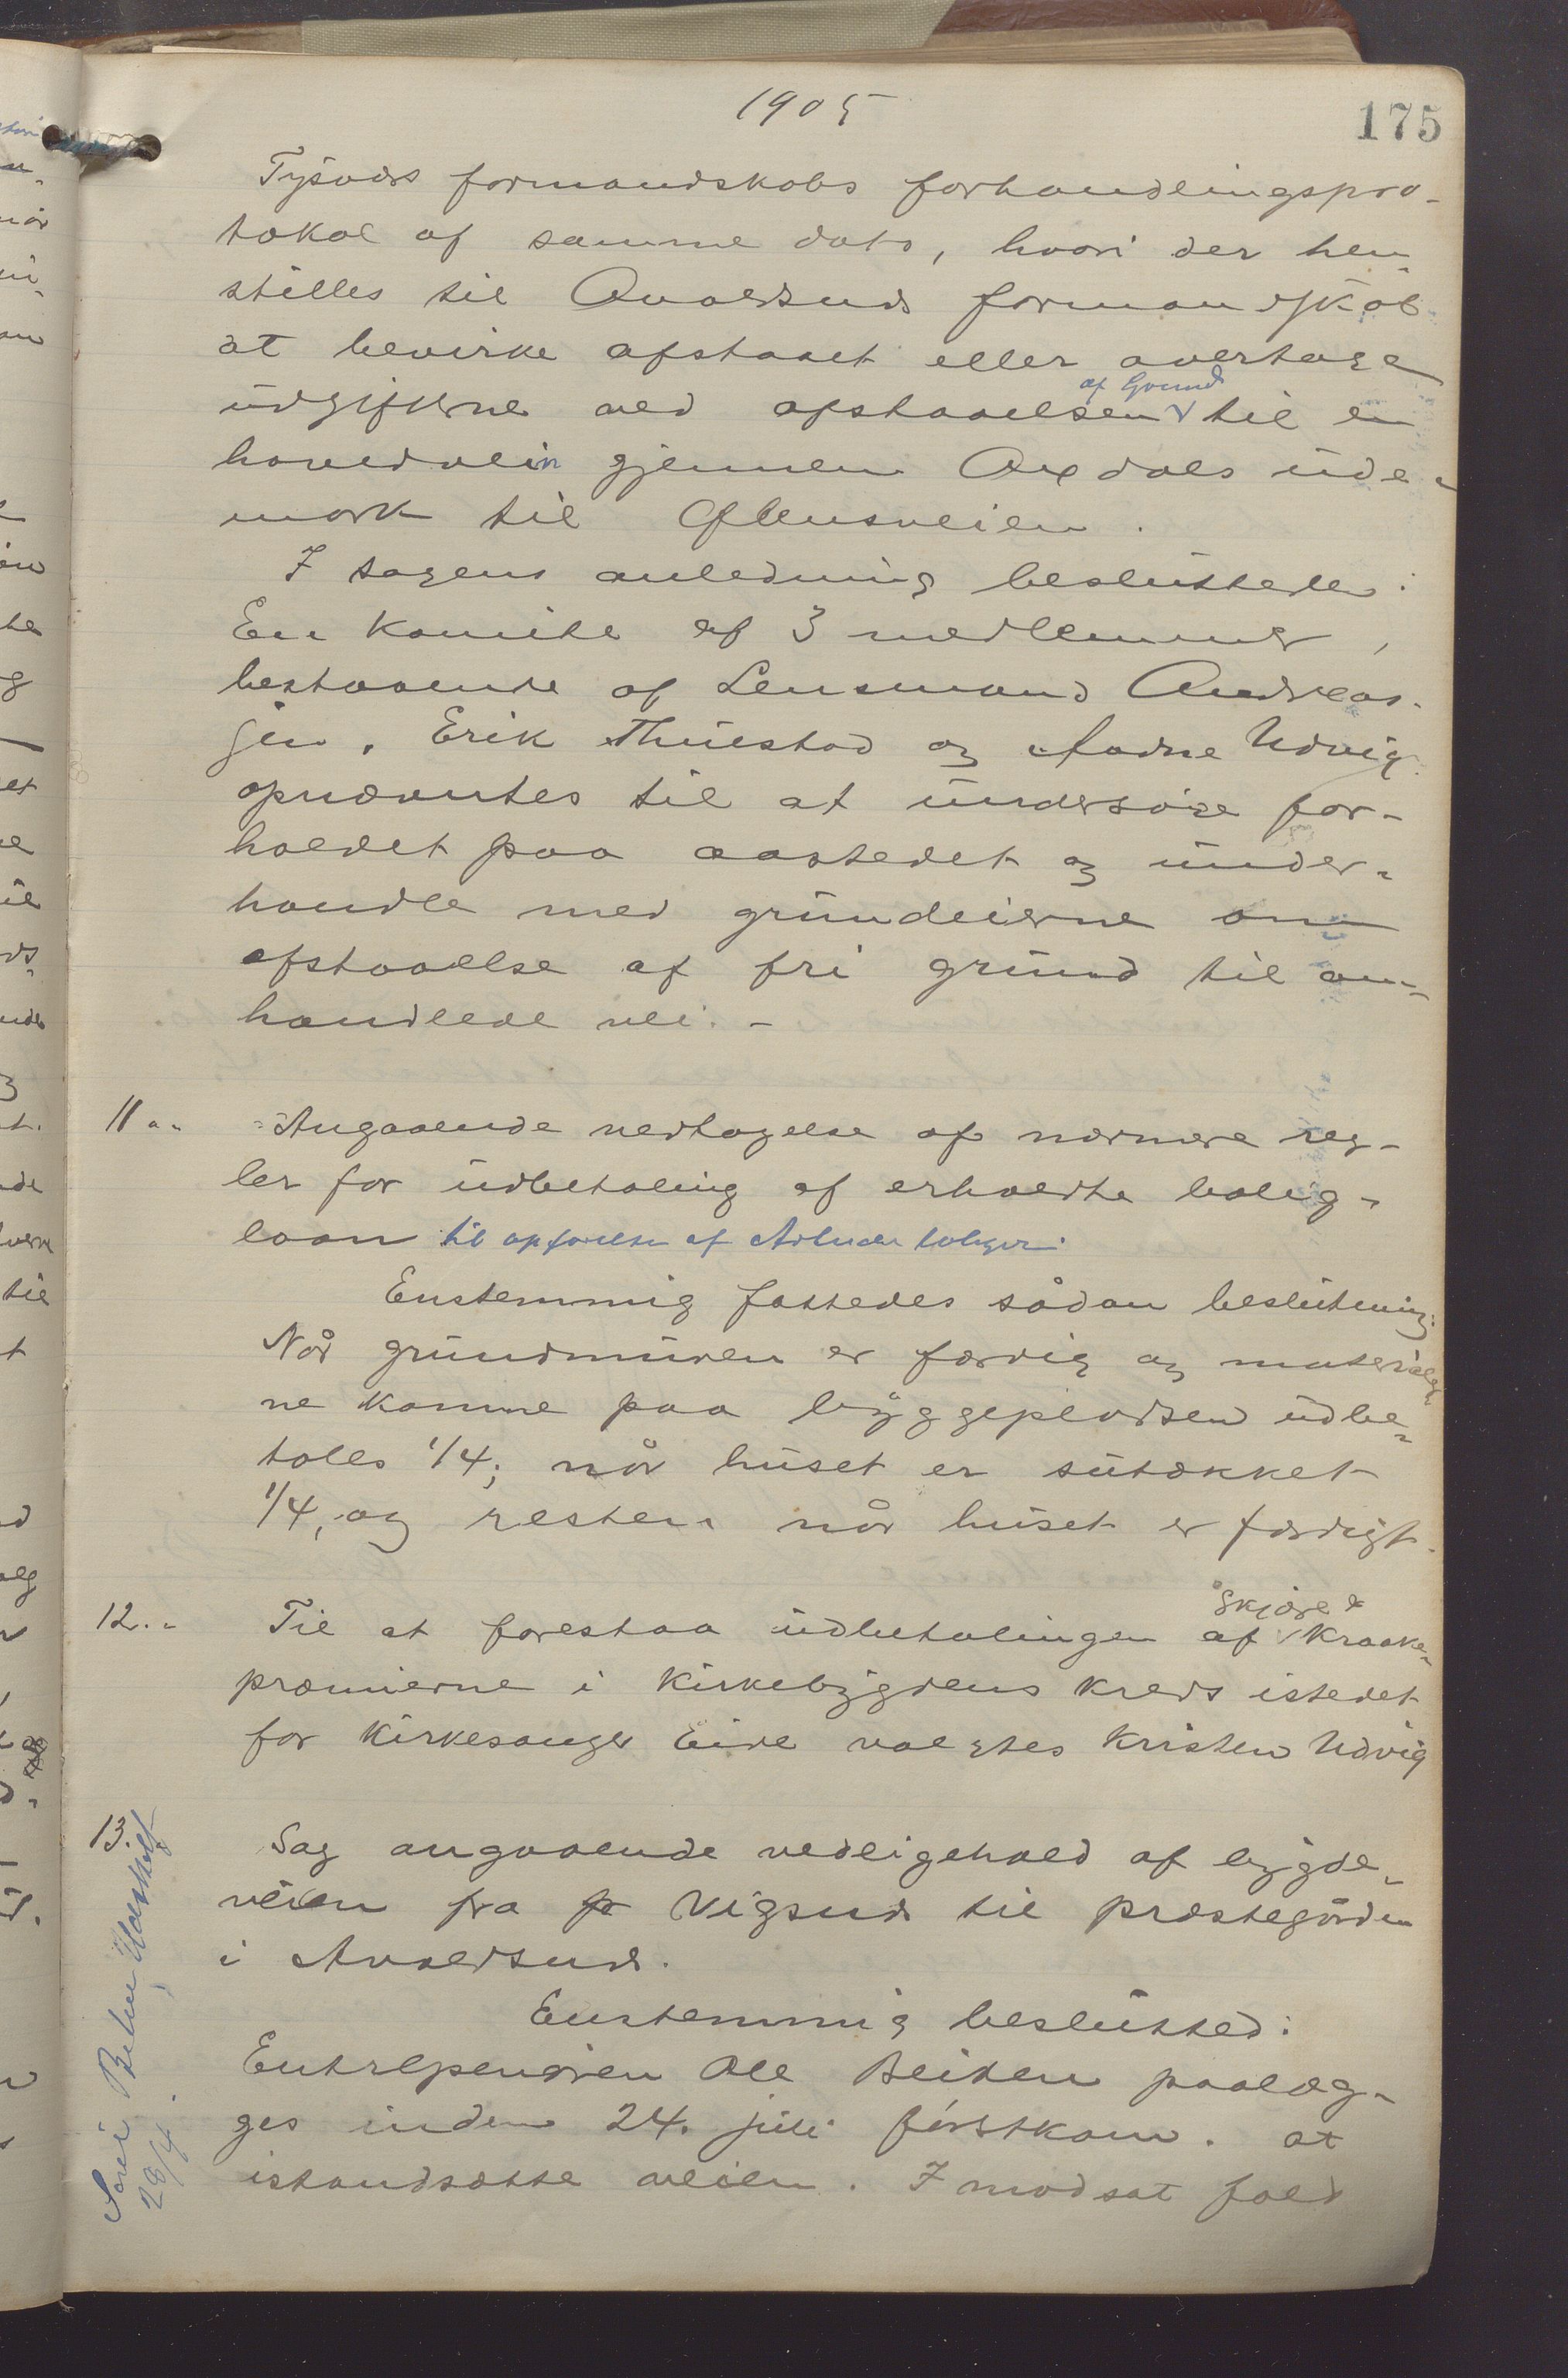 1905
175
Tysvær formandskabs forhandlingspro-
tokol af samme dato, hvori der hen-
stilles til Avaldsnes formandskab
at bevirke afstaaet eller overtage
udgifterne ved afstaaelsen af Grund til en
hovedvein gjennem Axdals ude-
mark til
I sagens anledning besluttedes:
En komite af 3 medlemmer,
bestaaende af Lensmand Andreas-
sen, Erik Thuestad og Aadne Udvig
opnævntes til at undersøge for-
holdet paa aastedet og under-
handle med grundeierne om
afstaaelse af fri grund til om-
handlede vei. -
11 .. Angaaende vedtagelse af nærmere reg-
ler for udbetaling af erholdte bolig-
laan til opførelse af Arbeider boliger.
Enstemmig fattedes sådan beslutning:
Når grundmuren er færdig og materialer
ne komne paa byggepladsen udbe-
tales 1/4; når huset er sutækket
1/4, og resten når huset er færdigt.
12 .. Til at forestaa udbetalingen af Skjære & Kraake-
præmierne i Kirkebygdens kreds istedet
for Kirkesanger Eide valgtes Kristen Udvig
13. Sag angaaende vedligehold af bygde-
veien fra fr Vigsnes til præstegården
i Avaldsnes.
Enstemmig beslutted:
Entreprenøren Ole Beiten paalæg-
ges inden 24. juli førstkom. at
istandsætte veien. I modsat fald
28/4